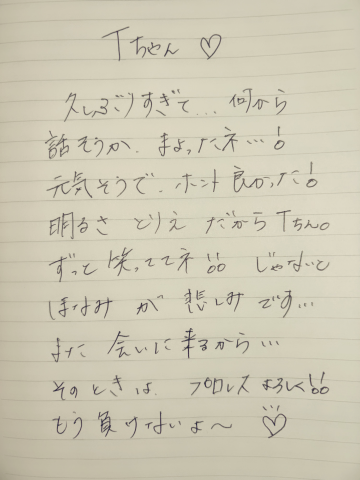 Tちゃん ♡
久しぶりすぎて... 何から
話そうか、まよったネ...!
元気そうで、ホント良かった!
明るさ とりえ だからTちん。
ずっと笑っててネ!! じゃないと
ほなみ が 悲しみ です...
また 会いに来るから...
そのときは、プロレスよろしく!!
もう負けないよ〜 ♡